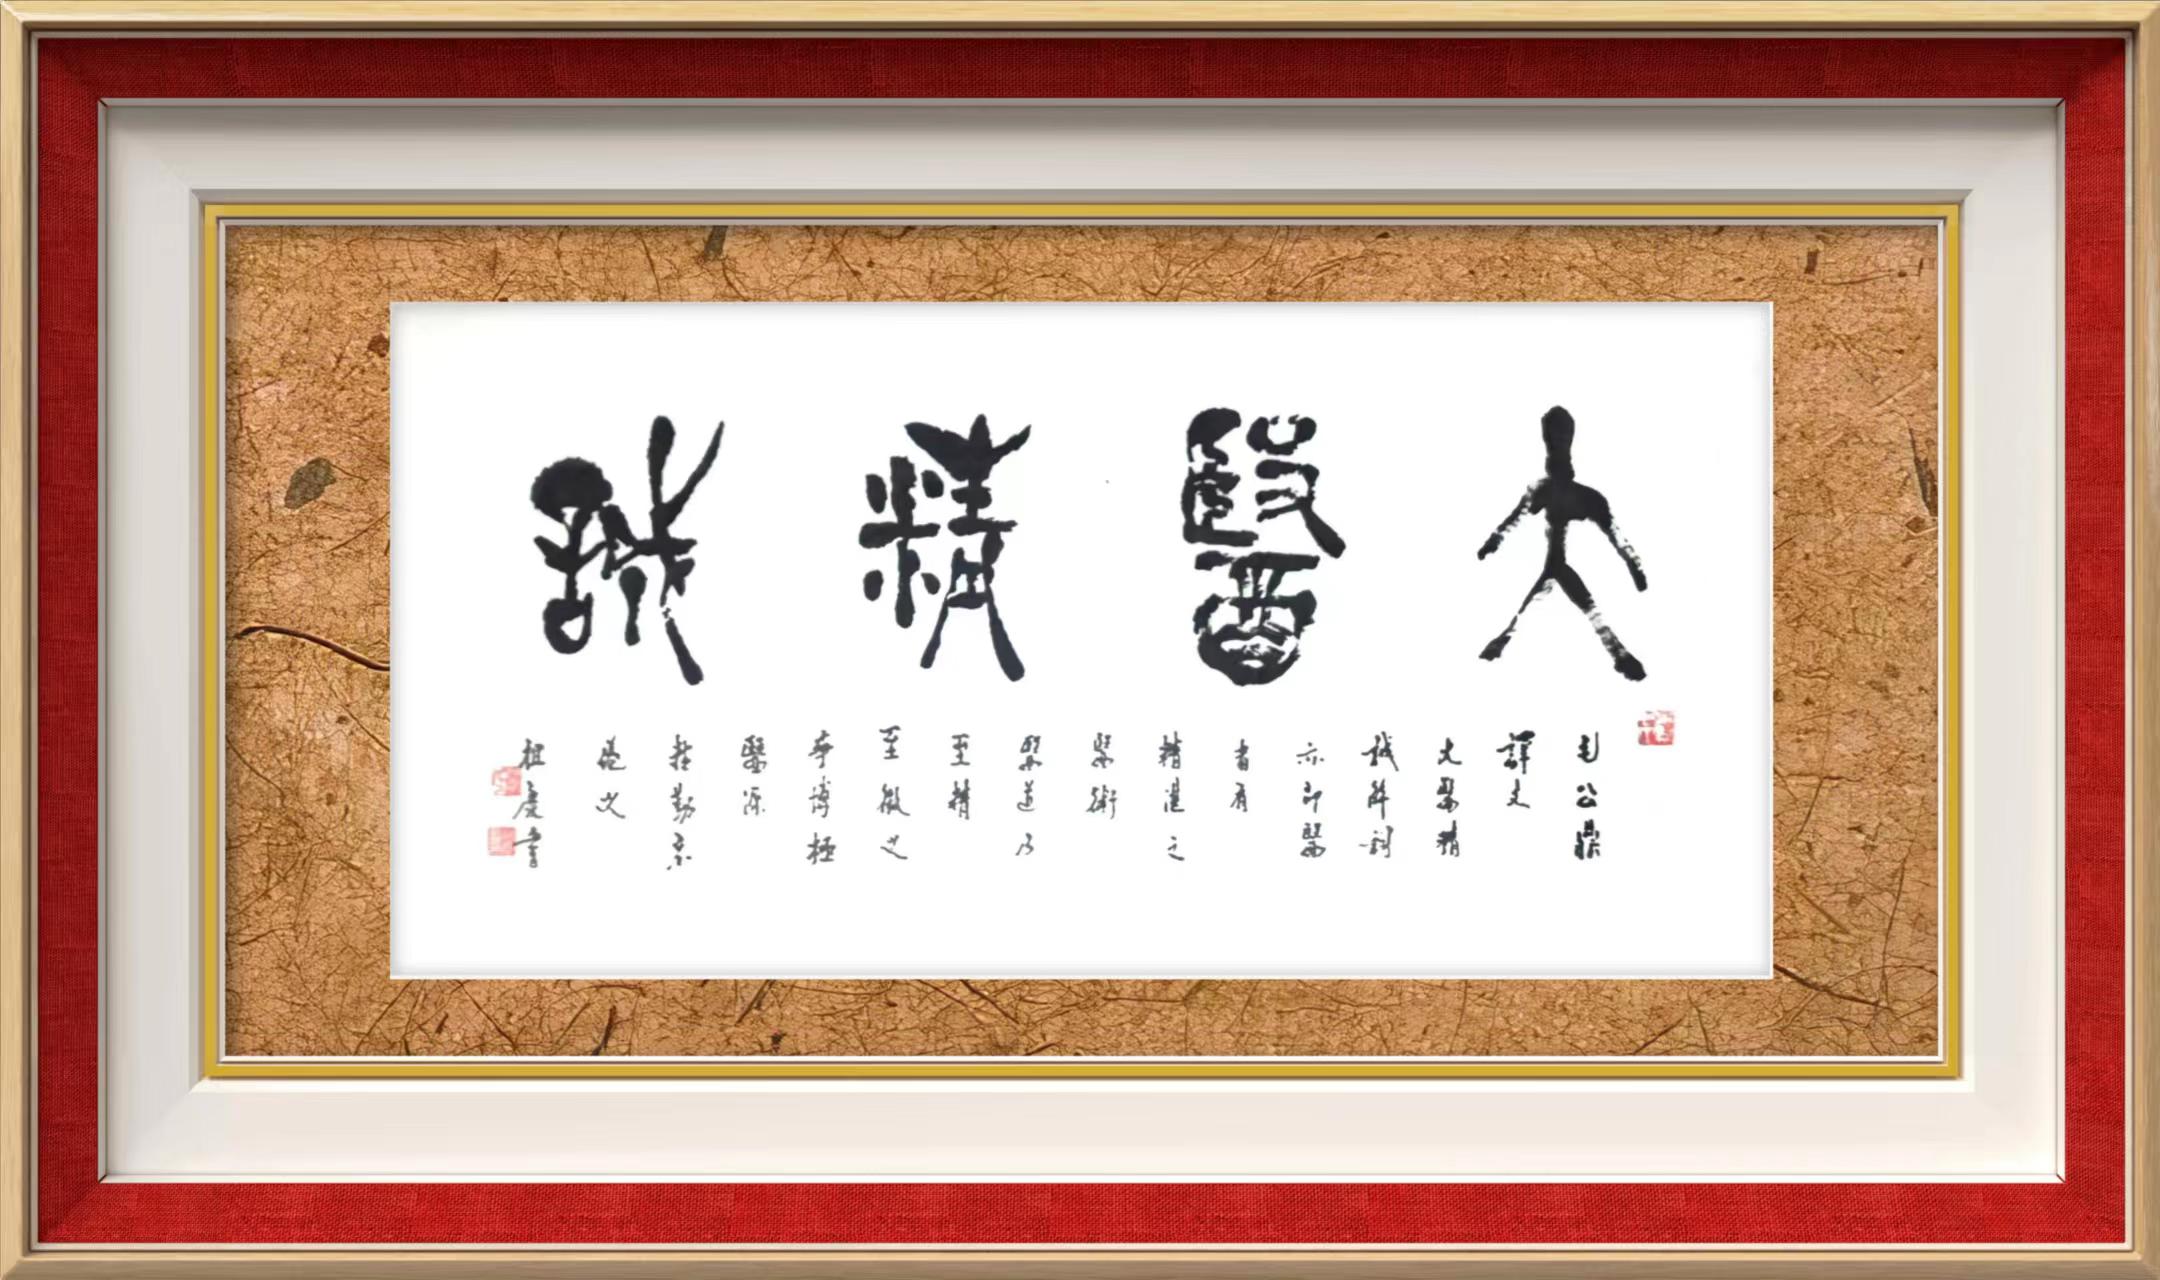 大醫精誠
毛公鼎
譯文
大醫精
誠解釋
亦即醫
者有
精湛之
醫術
醫道乃
至精
至微之
事博極
醫源
祖慶書